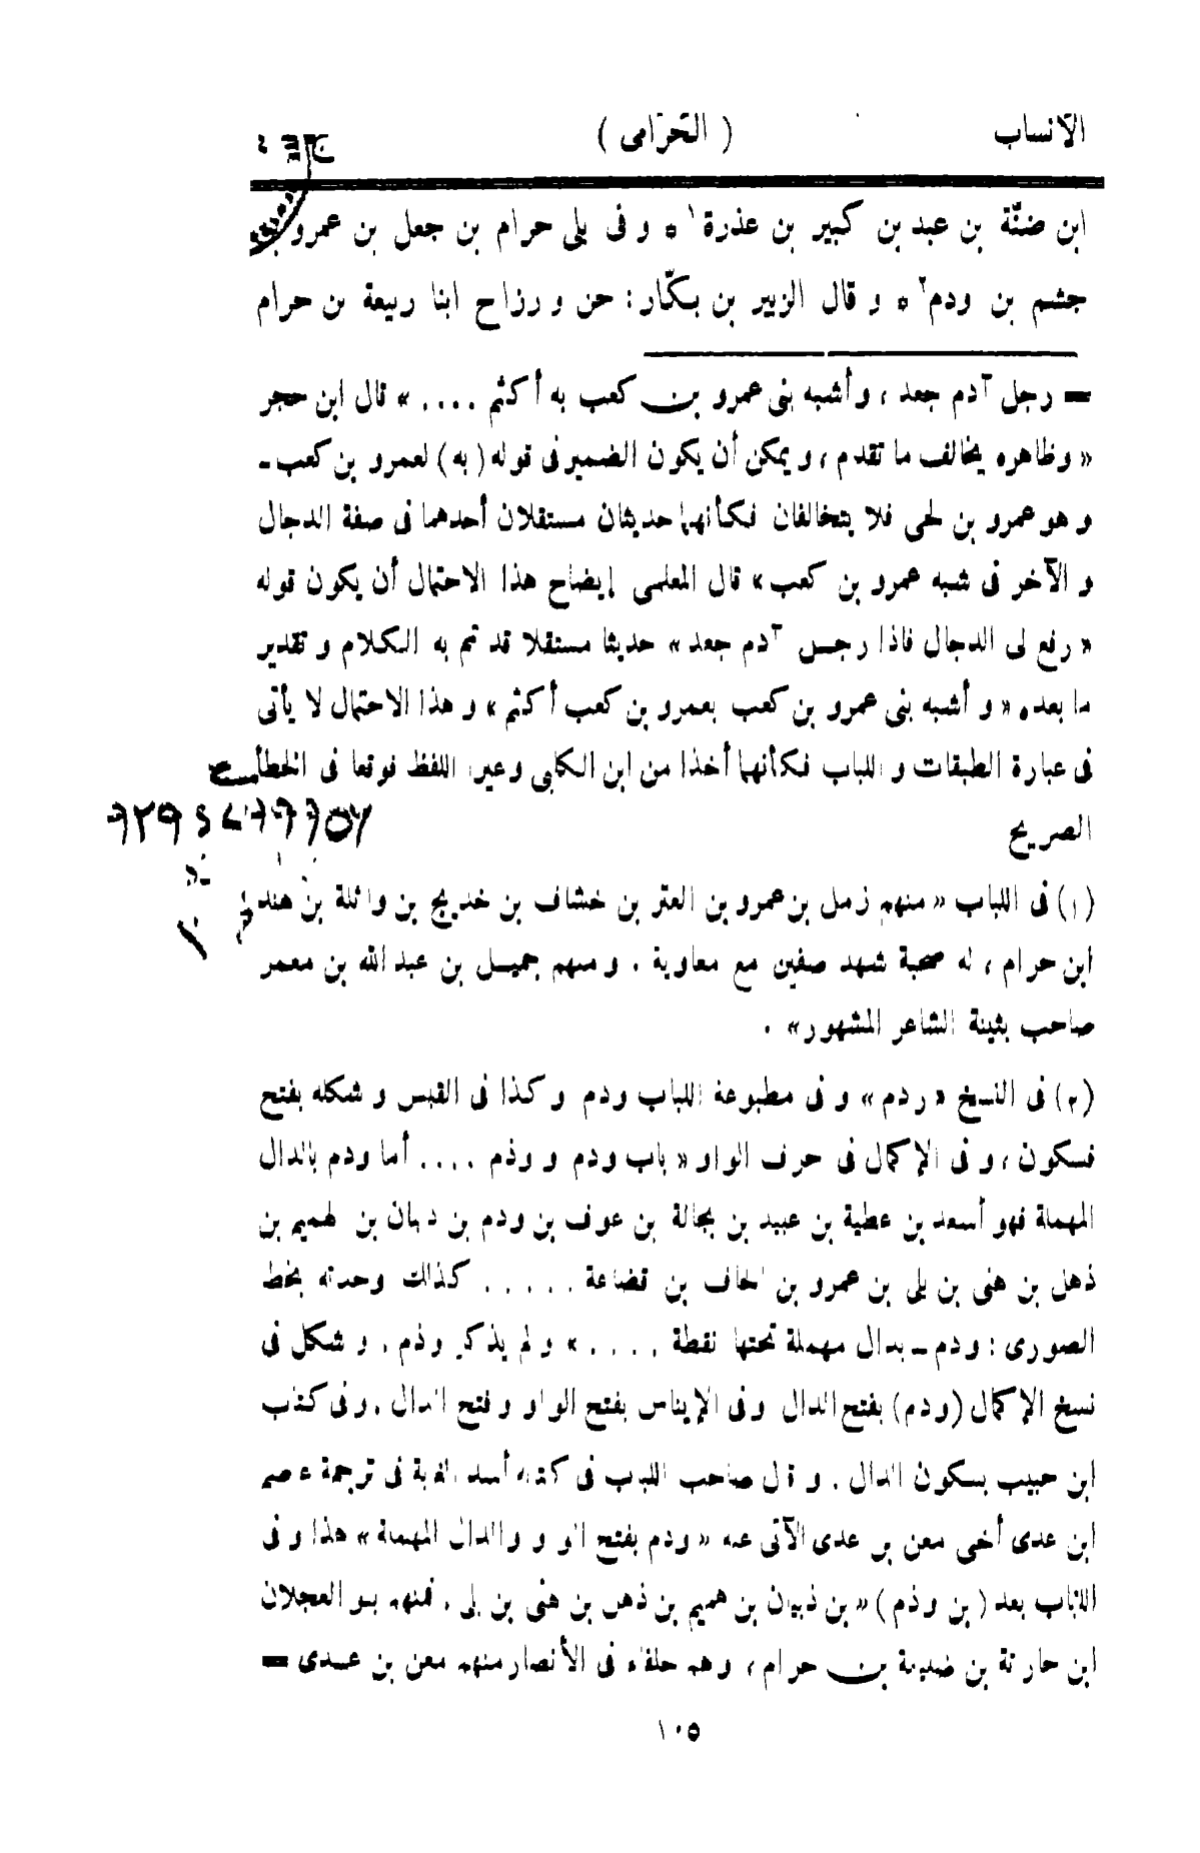 الأنساب ( الحَرَامى ) ج - ٤
ابن ضنّة بن عبد بن كبير بن عذرة ١ ه و فى بلى حرام بن جعل بن عمرو بن
جشم بن ودم ٢ ه و قال الزبير بن بكّار : حن و رزاح ابنا ربيعة بن حرام
= رجل آدم جعد ، و أشبه بنى عمرو بن كعب به أكثم .... » قال ابن حجر
« وظاهره يخالف ما تقدم ، ويمكن أن يكون الضمير فى قوله ( به ) لعمرو بن كعب ـ
و هو عمرو بن لحى فلا يتخالفان فكأنهما حديثان مستقلان أحدهما فى صفة الدجال
و الآخر فى شبه عمرو بن كعب » قال المعلمى إيضاح هذا الاحتمال أن يكون قوله
« رفع لى الدجال فاذا رجل آدم جعد » حديثا مستقلا قد تم به الكلام و تقدير
ما بعده « و أشبه بنى عمرو بن كعب بعمرو بن كعب أكثم » و هذا الاحتمال لا يأتى
فى عبارة الطبقات و اللباب فكأنهما أخذا من ابن الكلبى وغيرا اللفظ فوقعا فى الخطأ
الصريح
(١) فى اللباب « منهم زمل بن عمرو بن العتر بن خشاف بن خديج بن واثلة بن هند
ابن حرام ، له صحبة شهد صفين مع معاوية . و منهم جميل بن عبد الله بن معمر
صاحب بثينة الشاعر المشهور » .
(٢) فى النسخ « ردم » و فى مطبوعة اللباب ودم وكذا فى القبس و شكله بفتح
فسكون ، و فى الإكمال فى حرف الواو « باب ودم و وذم .... أما ودم بالدال
المهملة فهو أسعد بن عطية بن عبيد بن بجالة بن عوف بن ودم بن ذبيان بن هميم بن
ذهل بن هنى بن بلى بن عمرو بن الحاف بن قضاعة ..... كذلك وجدته بخط
الصورى : ودم ـ بدال مهملة تحتها نقطة .... » و لم يذكر وذم . و شكل فى
نسخ الإكمال ( ودم ) بفتح الدال وفى الإيناس بفتح الواو و فتح الدال . وفى كتاب
ابن حبيب بسكون الدال . و قال صاحب اللباب فى كتابه أسد الغابة فى ترجمة عاصم
ابن عدى أخى معن بن عدى الآتى عنه « ودم بفتح الواو والدال المهملة » هذا و فى
اللباب بعد ( بن وذم ) « بن ذبيان بن هميم بن ذهل بن هنى بن بلى . فمنهم بنو العجلان
ابن حارثة بن ضبيعة بن حرام ، وهم حلفاء فى الأنصار منهم معن بن عدى =
١٠٥